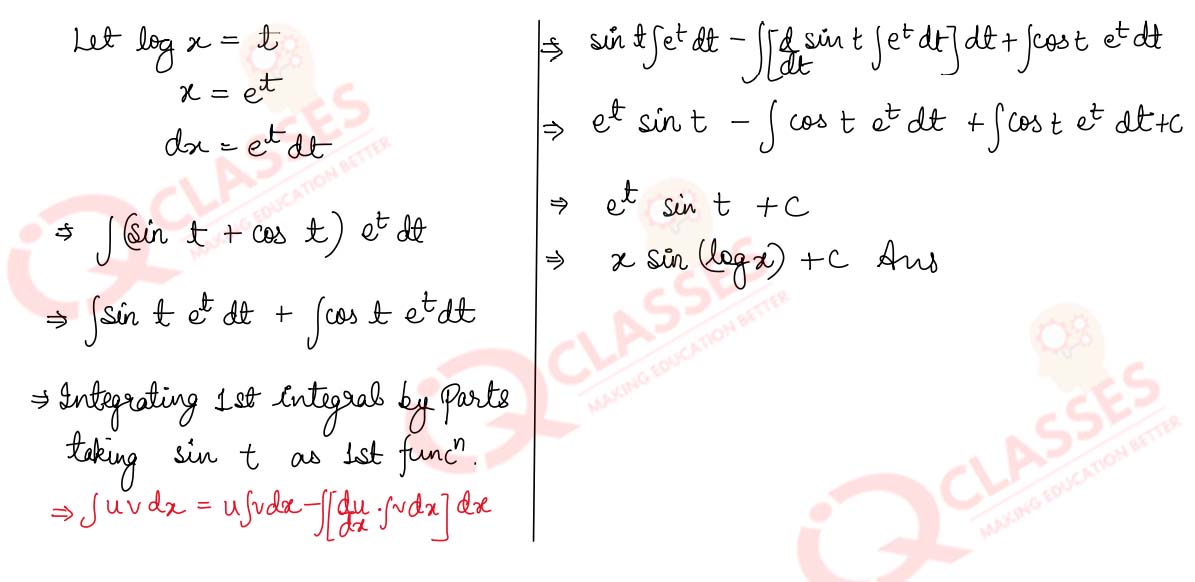 Let log x = t
x = e^t
dx = e^t dt
⇒ ∫(sin t + cos t) e^t dt
⇒ ∫sin t e^t dt + ∫cos t e^t dt
⇒ Integrating 1st integral by Parts
taking sin t as 1st func^n.
⇒ ∫u v dx = u∫v dx - ∫[du/dx · ∫v dx] dx
⇒ sin t ∫e^t dt - ∫[d/dt sin t ∫e^t dt] dt + ∫cos t e^t dt
⇒ e^t sin t - ∫ cos t e^t dt + ∫cos t e^t dt + C
⇒ e^t sin t + C
⇒ x sin (log x) + C Ans
IQ CLASSES
MAKING EDUCATION BETTER
IQ CLASSES
MAKING EDUCATION BETTER
IQ CLASSES
MAKING EDUCATION BETTER